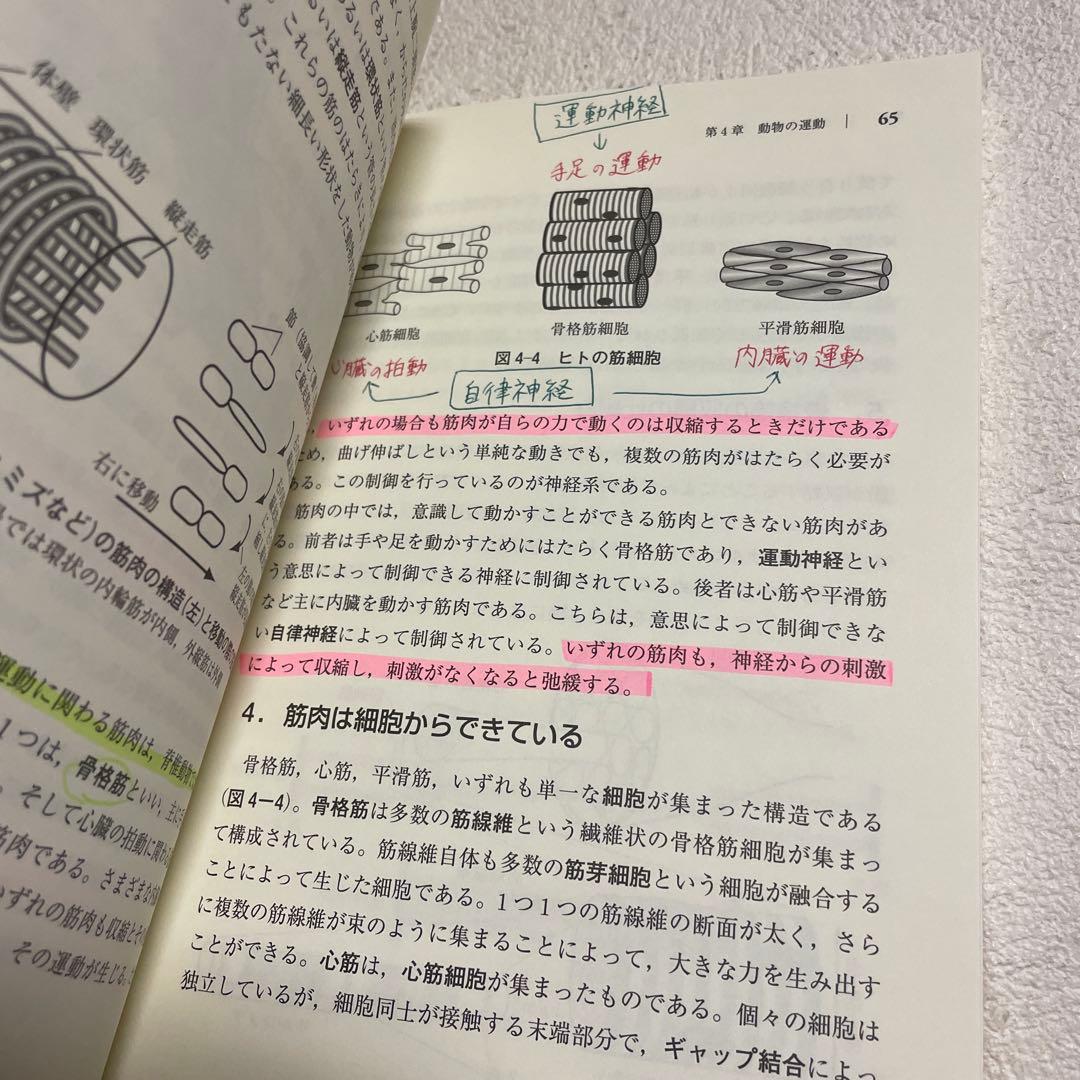 体壁
環状筋
縦走筋
右に移動
ミミズなど)の筋肉の構造(左)と移動の
では環状の内輪筋が内側,外縦筋は外側
運動に関わる筋肉は,脊椎動物で
1つは,骨格筋といい,主に
。そして心臓の拍動に関わる
筋肉である。さまざまな内臓
いずれの筋肉も収縮と
その運動が生じる。
第4章 動物の運動 | 65
運動神経
手足の運動
心筋細胞
骨格筋細胞
平滑筋細胞
図4-4 ヒトの筋細胞
臓の拍動
内臓の運動
自律神経
,いずれの場合も筋肉が自らの力で動くのは収縮するときだけである
ため,曲げ伸ばしという単純な動きでも,複数の筋肉がはたらく必要が
ある。この制御を行っているのが神経系である。
筋肉の中では,意識して動かすことができる筋肉とできない筋肉があ
る。前者は手や足を動かすためにはたらく骨格筋であり,運動神経とい
う意思によって制御できる神経に制御されている。後者は心筋や平滑筋
など主に内臓を動かす筋肉である。こちらは,意思によって制御できな
い自律神経によって制御されている。いずれの筋肉も,神経からの刺激
によって収縮し,刺激がなくなると弛緩する。
4.筋肉は細胞からできている
骨格筋,心筋,平滑筋,いずれも単一な細胞が集まった構造である
(図4−4)。骨格筋は多数の筋線維という繊維状の骨格筋細胞が集まっ
て構成されている。筋線維自体も多数の筋芽細胞という細胞が融合する
ことによって生じた細胞である。1つ1つの筋線維の断面が太く,さら
に複数の筋線維が束のように集まることによって,大きな力を生み出す
ことができる。心筋は,心筋細胞が集まったものである。個々の細胞は
独立しているが,細胞同士が接触する末端部分で,ギャップ結合によっ